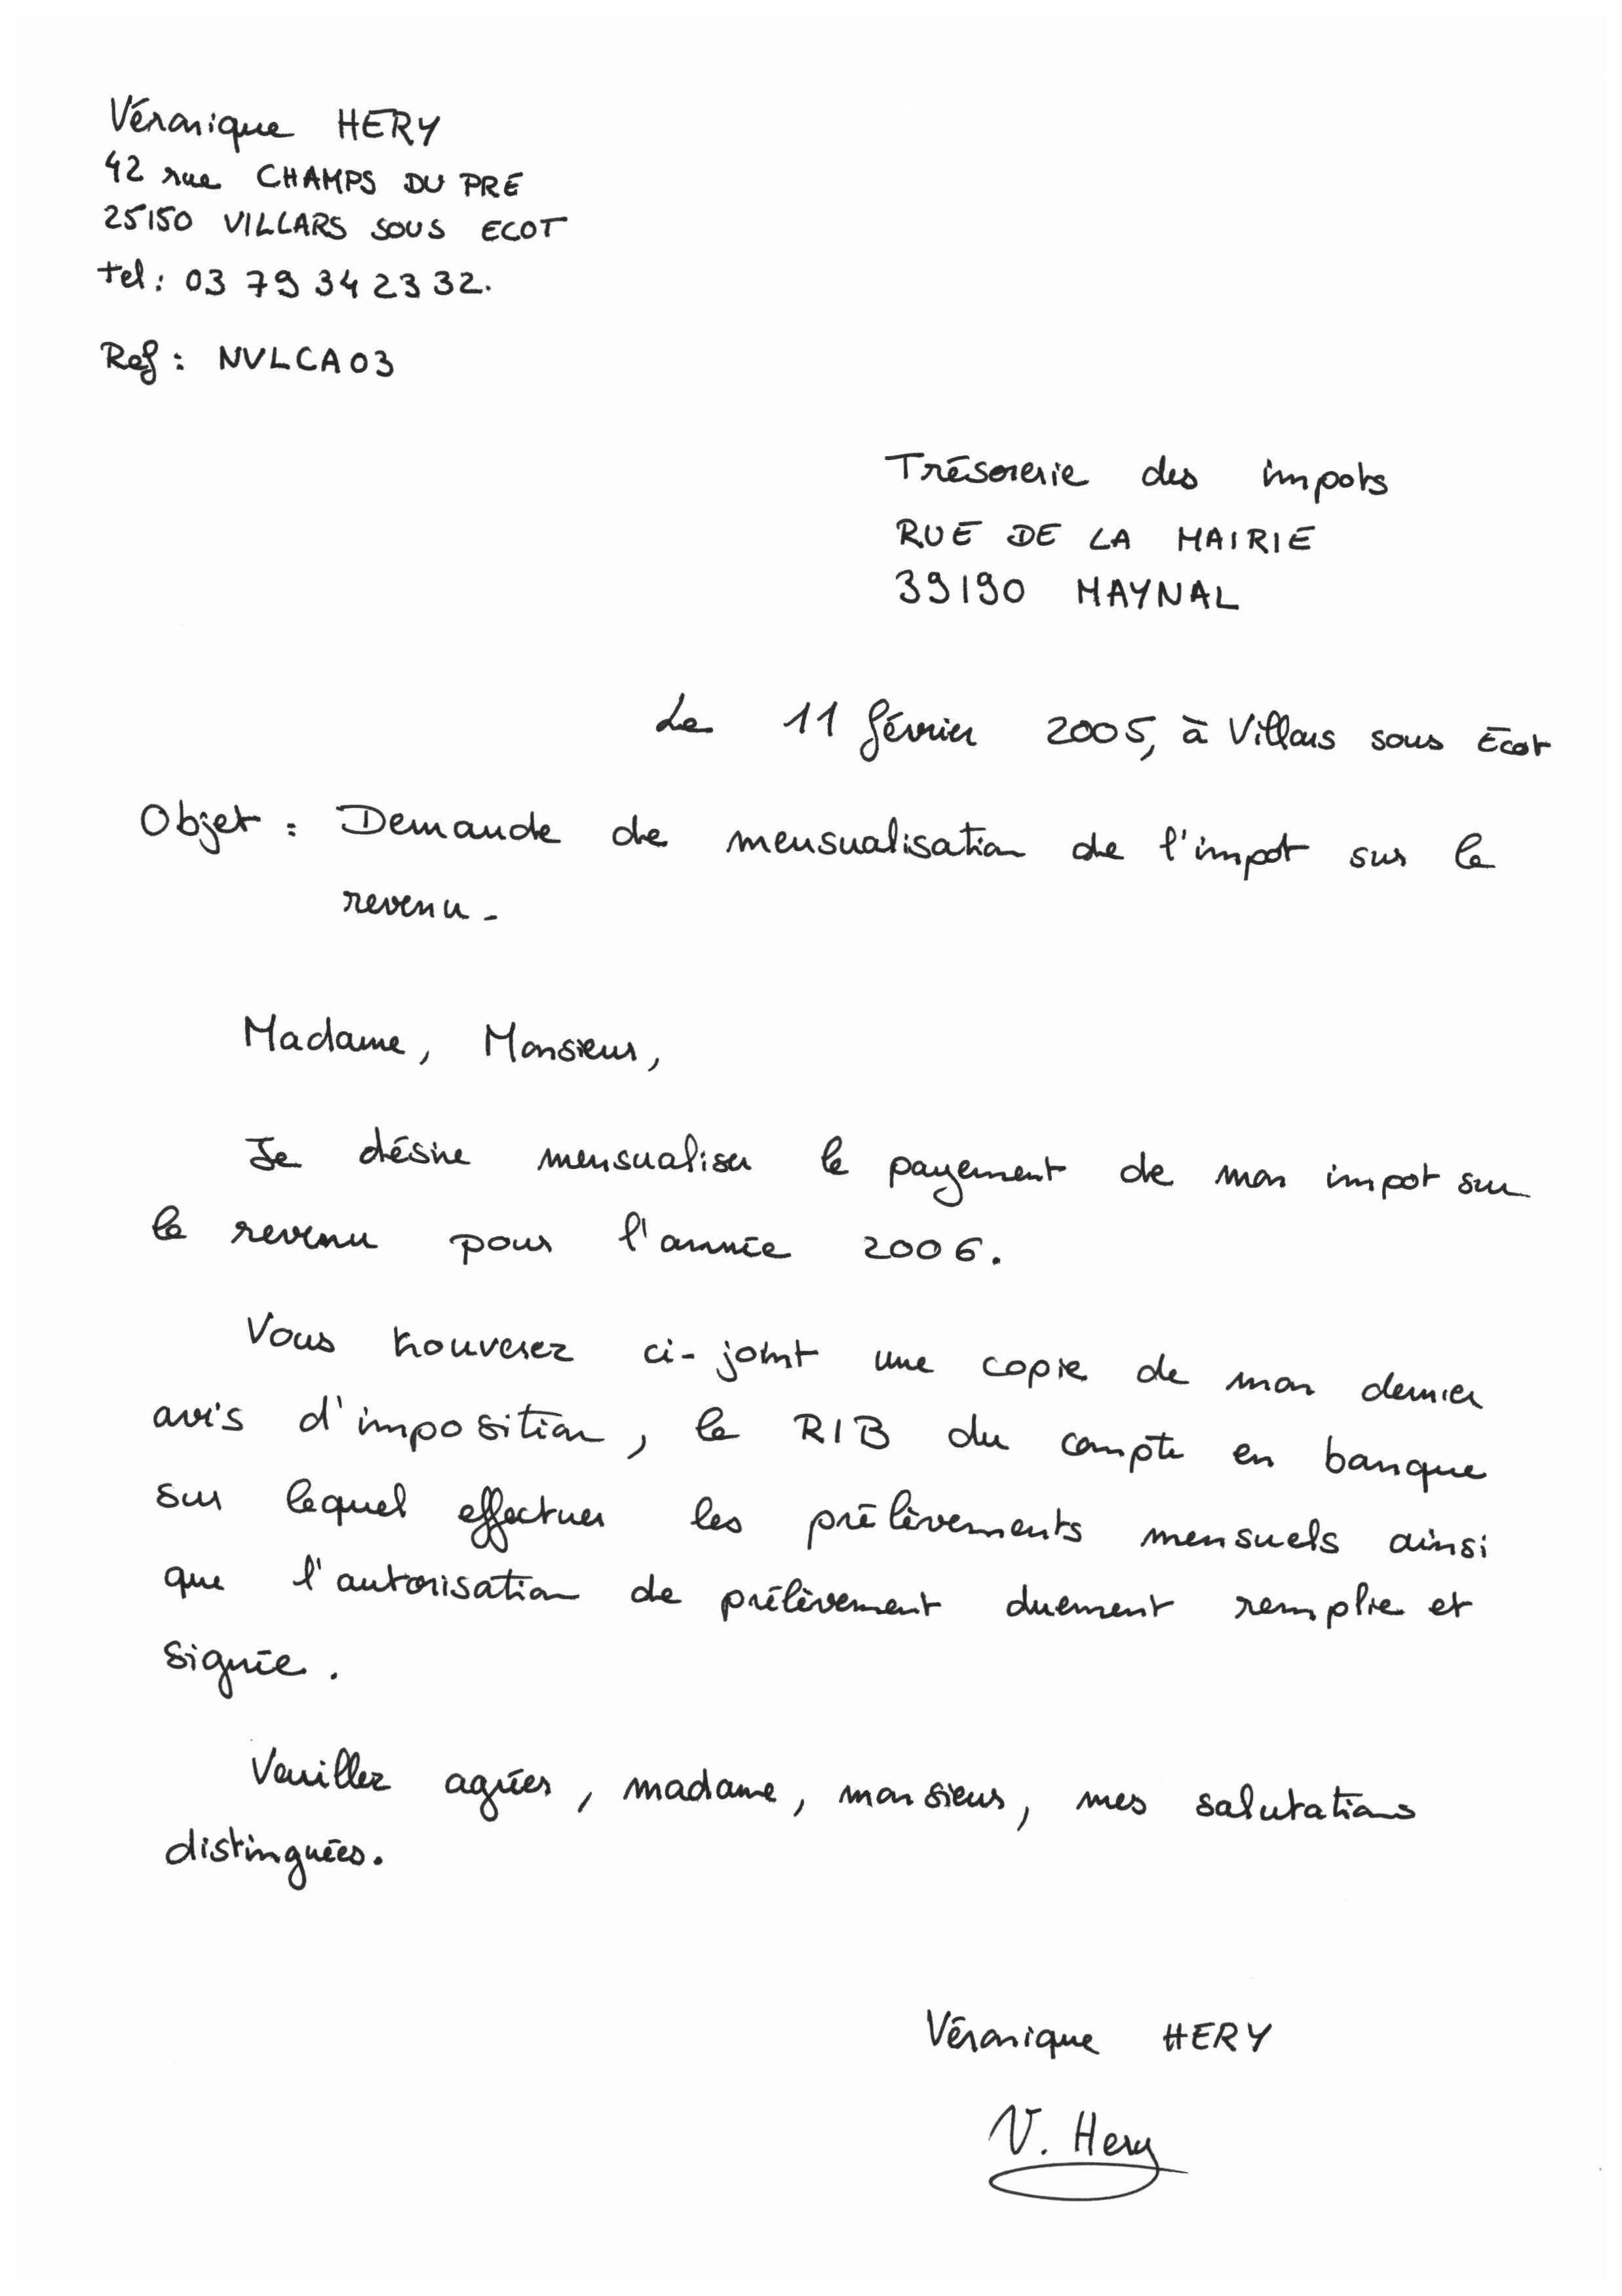 Véronique HERY
42 rue CHAMPS DU PRE
25150 VILLARS SOUS ECOT
tel : 03 79 34 23 32.
Ref : NVLCA03
Trésorerie des impots
RUE DE LA MAIRIE
39190 MAYNAL
Le 11 février 2005, à Villars sous Ecot
Objet : Demande de mensualisation de l'impot sur le
revenu.
Madame, Monsieur,
Je désire mensualiser le payement de mon impot sur
le revenu pour l'année 2006.
Vous trouverez ci-joint une copie de mon dernier
avis d'imposition, le RIB du compte en banque
sur lequel effectuer les prélèvements mensuels ainsi
que l'autorisation de prélèvement duement remplie et
signée.
Veuillez agréer, madame, monsieur, mes salutations
distinguées.
Véronique HERY
V. Hery